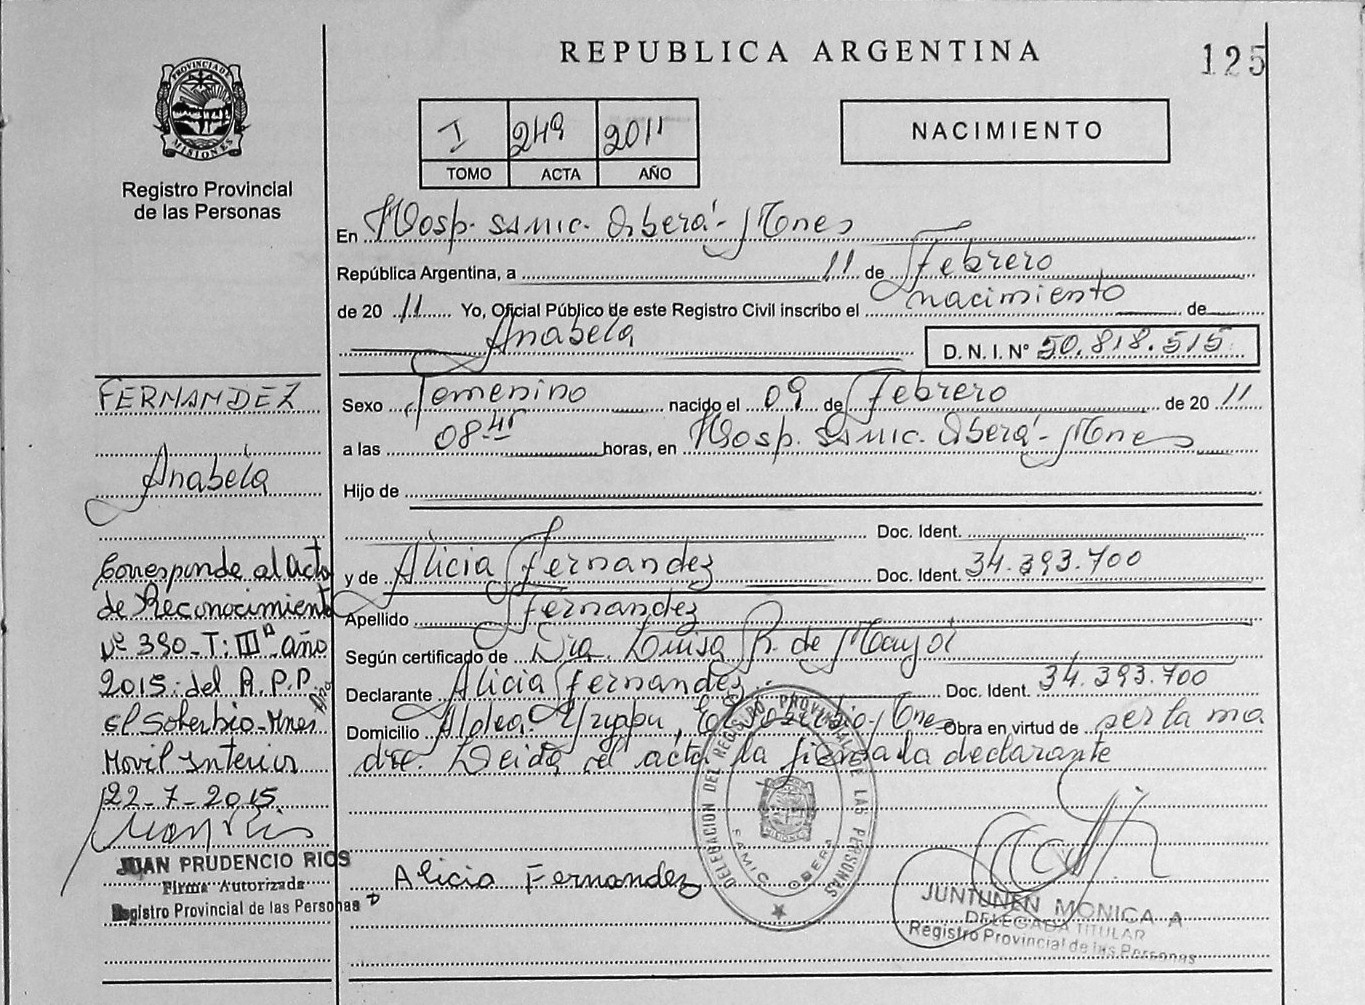 REPUBLICA ARGENTINA
125
PROVINCIA DE
MISIONES
Registro Provincial
de las Personas
I 249 2011
TOMO ACTA AÑO
NACIMIENTO
En Hosp. SAMIC. Oberá - Mnes
República Argentina, a 11 de Febrero
de 20 11 Yo, Oficial Público de este Registro Civil inscribo el nacimiento de
Anabela
D. N. I. N° 50.818.515
Sexo Femenino nacido el 09 de Febrero de 20 11
a las 08 45 horas, en Hosp. SAMIC. Oberá - Mnes
Hijo de
Doc. Ident.
y de Alicia Fernandez Doc. Ident. 34.393.700
Apellido Fernandez
Según certificado de Dra. Luisa R. de Mayol
Declarante Alicia Fernandez Doc. Ident. 34.393.700
Domicilio Aldea El Soberbio - Mnes Obra en virtud de ser la ma
dre. Leida el acta la firma la declarante
Alicia Fernandez
DELEGACION DEL REGISTRO PROVINCIAL DE LAS PERSONAS
SAMIC OBERA
MISIONES
JUNTUNEN MONICA A
DELEGADA TITULAR
Registro Provincial de las Personas
FERNANDEZ
Anabela
Corresponde al acta
de Reconocimiento
Nº 390 - T: III año
2015 del R.P.P
El Soberbio - Mnes
Movil Interior
22-7-2015
JUAN PRUDENCIO RIOS
Firma Autorizada
Registro Provincial de las Personas